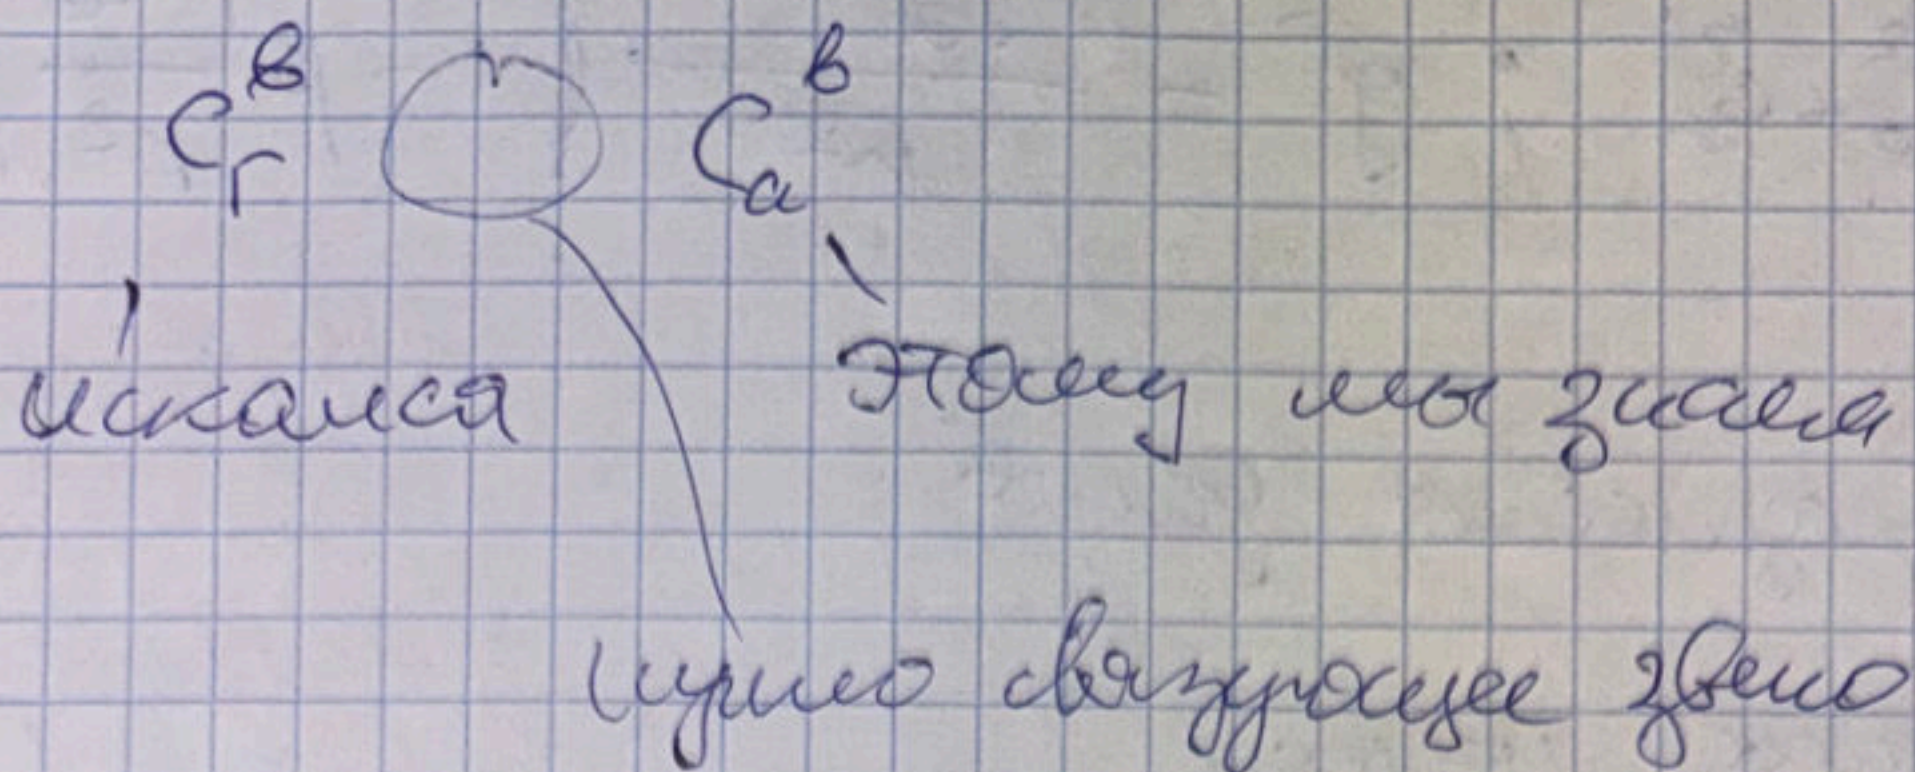 Cᵣᵇ Cₐᵇ
искался этому мы знаем
нужно связующее звено